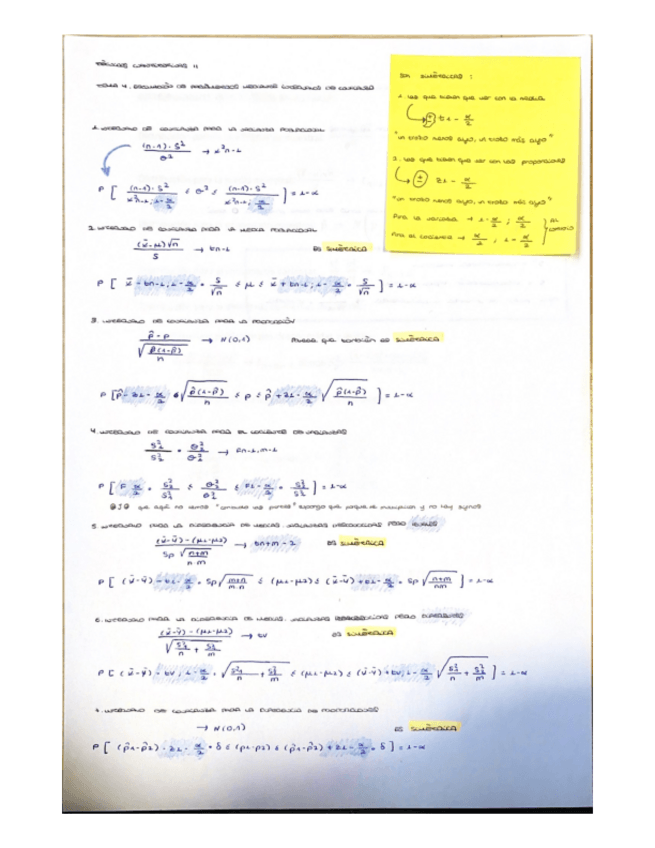 TÉCNICAS CUANTITATIVAS II
TEMA 4. ESTIMACIÓN DE PARÁMETROS MEDIANTE INTERVALOS DE CONFIANZA
1. INTERVALO DE CONFIANZA PARA LA VARIANZA POBLACIONAL
(n-1)·S² / σ² → x²n-1
P [ (n-1)·S² / x²n-1; 1-α/2 ≤ σ² ≤ (n-1)·S² / x²n-1; α/2 ] = 1-α
2. INTERVALO DE CONFIANZA PARA LA MEDIA POBLACIONAL
(x̄-μ)√n / S → tn-1 ES SIMÉTRICA
P [ x̄ - tn-1; 1-α/2 · S/√n ≤ μ ≤ x̄ + tn-1; 1-α/2 · S/√n ] = 1-α
3. INTERVALO DE CONFIANZA PARA LA PROPORCIÓN
p̂-p / √(p̂(1-p̂)/n) → N(0,1) que también es SIMÉTRICA
P [p̂ - z1-α/2 · √(p̂(1-p̂)/n) ≤ p ≤ p̂ + z1-α/2 √(p̂(1-p̂)/n) ] = 1-α
4. INTERVALO DE CONFIANZA PARA EL COCIENTE DE VARIANZAS
→ Fn-1, m-1
OJO que aquí no vemos porque se multiplican y no hay signos
5. INTERVALO PARA LA DIFERENCIA DE MEDIAS. VARIANZAS DESCONOCIDAS PERO IGUALES
(x̄-ȳ)-(μ1-μ2) / Sp √(n+m / n·m) → tn+m-2 ES SIMÉTRICA
P [ (x̄-ȳ) - t1-α/2 · Sp √(m+n / m·n) ≤ (μ1-μ2) ≤ (x̄-ȳ) + t1-α/2 · Sp √(n+m / nm) ] = 1-α
6. INTERVALO PARA LA DIFERENCIA DE MEDIAS. VARIANZAS DESCONOCIDAS PERO DIFERENTES
(x̄-ȳ)-(μ1-μ2) / √(S²1/n + S²2/m) → tv ES SIMÉTRICA
P [ (x̄-ȳ) - tv; 1-α/2 · √(S²1/n + S²2/m) ≤ (μ1-μ2) ≤ (x̄-ȳ) + tv; 1-α/2 √(S²1/n + S²2/m) ] = 1-α
7. INTERVALO DE CONFIANZA PARA LA DIFERENCIA DE PROPORCIONES
→ N(0,1) ES SIMÉTRICA
P [ (p̂1-p̂2) - z1-α/2 · δ ≤ (p1-p2) ≤ (p̂1-p̂2) + z1-α/2 · δ ] = 1-α
SON SIMÉTRICAS:
1. Las que tienen que ver con la media
± t1-α/2
"un trozo menos algo, un trozo más algo"
2. Las que tienen que ver con las proporciones
± z1-α/2
"un trozo menos algo, un trozo más algo"
Para la varianza → 1-α/2 ; α/2
Para el cociente → α/2 ; 1-α/2